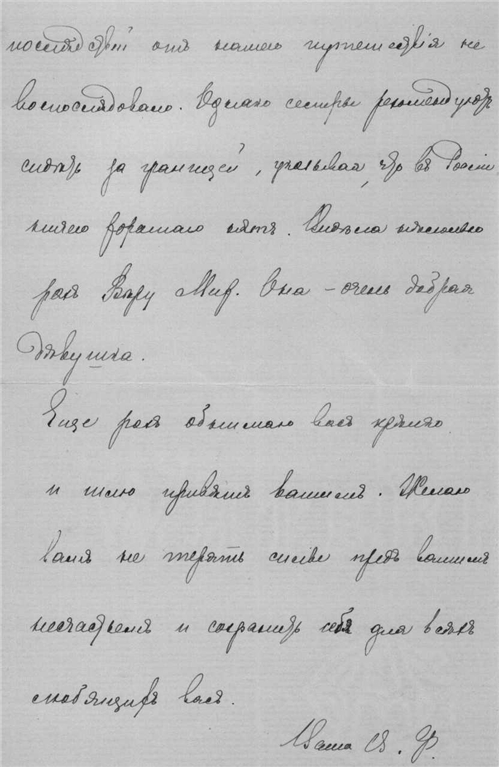 послѣдствій отъ нашего путешествія не
воспослѣдовало. Однако сестры рекомендуютъ
сидѣть за границей, указывая, что въ Россіи
ничего хорошаго нѣтъ. Видѣла нѣсколько
разъ Вѣру Миф. Она – очень добрая
дѣвушка.
Еще разъ обнимаю васъ крѣпко
и шлю привѣтъ вашимъ. Желаю
вамъ не терять силы предъ вашимъ
несчастьемъ и сохранить себя для всѣхъ
любящихъ васъ.
Ваша В. Ф.